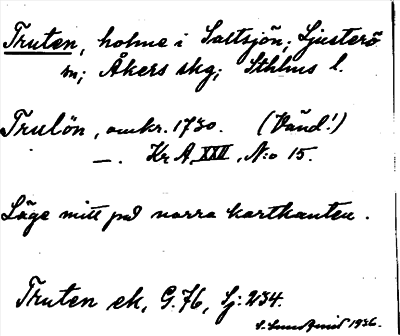 Truten, holme i Saltsjön; Ljusterö
sn; Åkers skg; Sthlms l.
Trulön, omkr. 1730. (Vänd!)
—. Kr A XXII, N:o 15.
Läge mitt på norra kartkanten.
Truten ek, G. 76, Lj: 234.
1936.